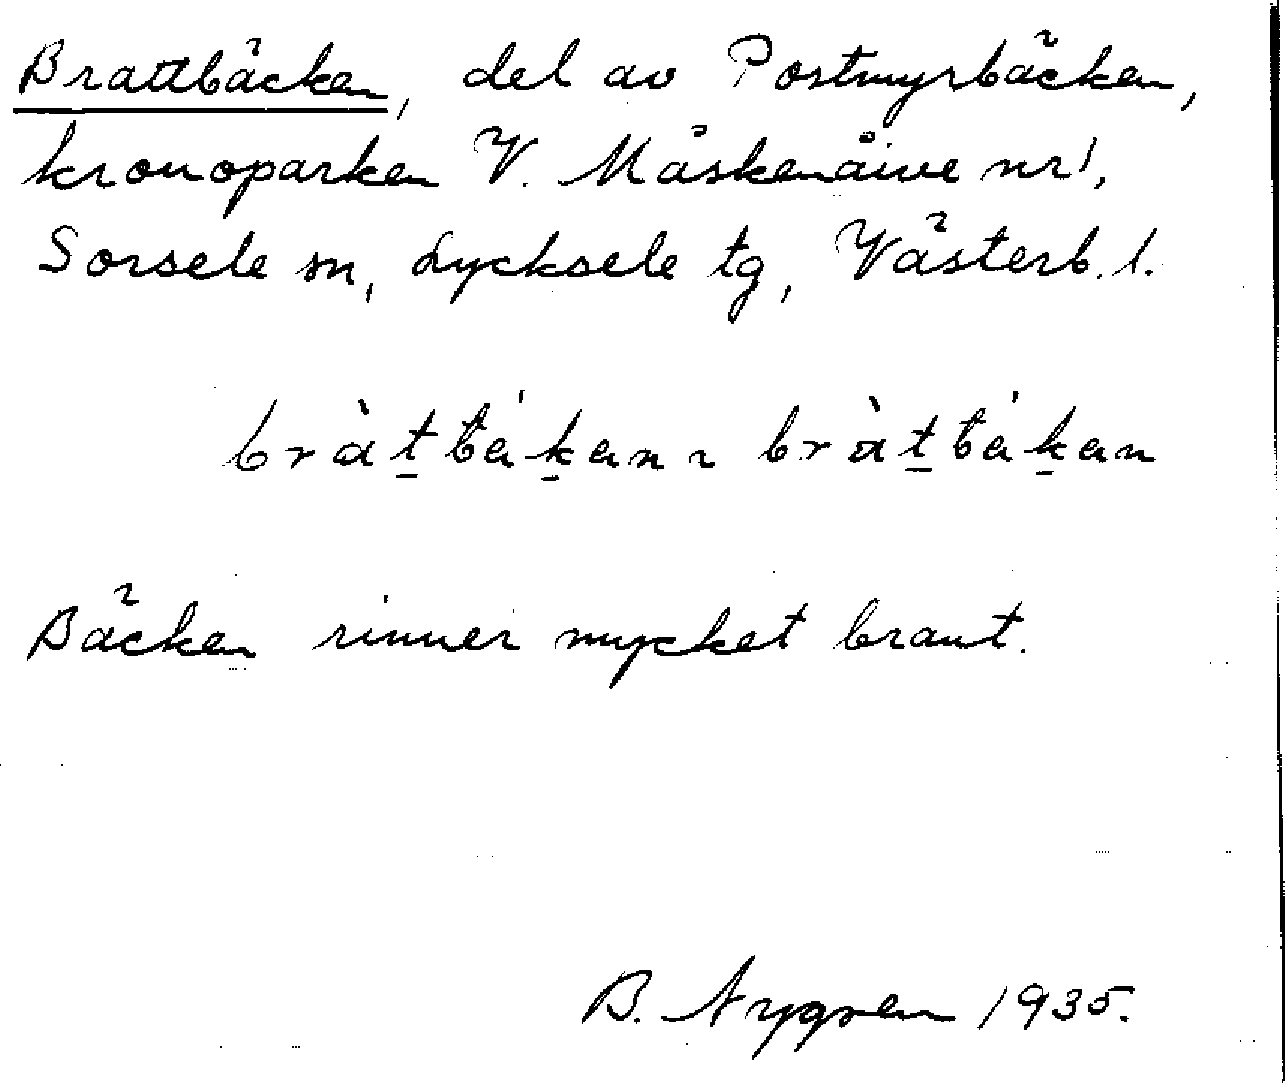 Brattbäcken, del av Postmyrbäcken,
kronoparken V. Måskenåive nr 1,
Sorsele sn, Lycksele tg, Västerb. l.
bràt̠bek̠an ~ bràt̠bek̠an
Bäcken rinner mycket brant.
B. Nygren 1935.